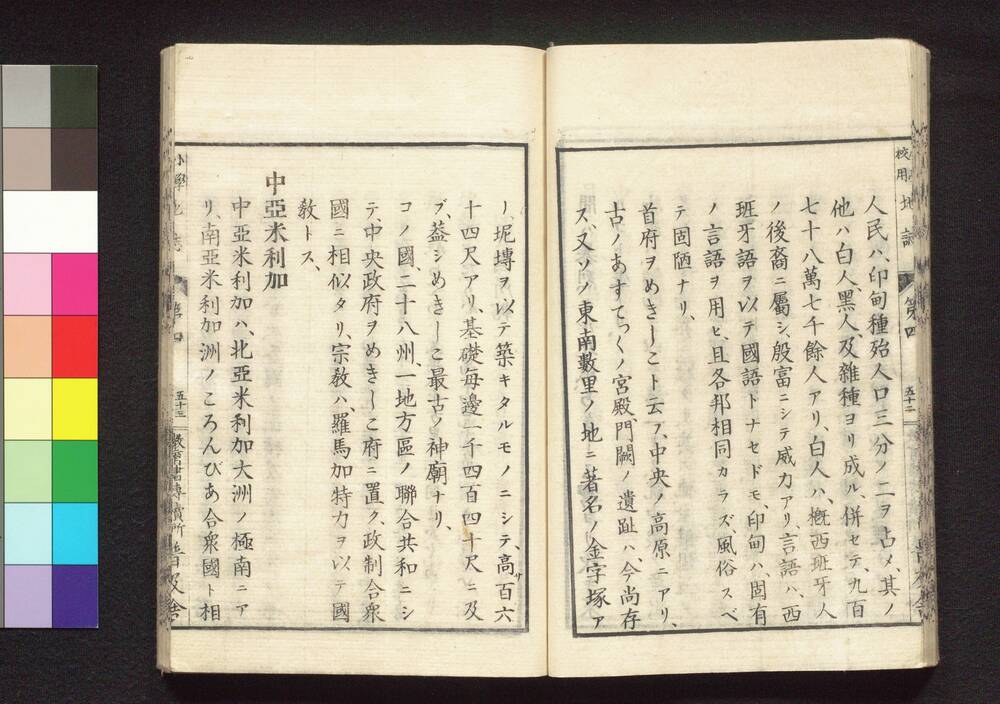 校用 地誌 第四 五十二
人民ハ、印甸種殆人口三分ノ二ヲ占メ、其ノ
他ハ白人、黑人、及雜種ヨリ成ル、併セテ、九百
七十八萬七千餘人アリ、白人ハ、槪西班牙人
ノ後裔ニ屬シ、殷富ニシテ威力アリ、言語ハ、西
班牙語ヲ以テ國語トナセドモ、印甸ハ、固有
ノ言語ヲ用ヒ、且各邦相同カラズ、風俗スベ
テ固陋ナリ、
首府ヲめきしこト云フ、中央ノ高原ニアリ、
古ノあすてっくノ宮殿、門闕ノ遺趾ハ、今尚存
ス、又ソノ東南數里ノ地ニ著名ノ金字塚ア
リ、坭塼ヲ以テ築キタルモノニシテ、高サ百六
十四尺アリ、基礎每邊一千四百四十尺ニ及
ブ、蓋シめきしこ最古ノ神廟ナリ、
コノ國、二十八州、一地方區ノ聯合共和ニシ
テ、中央政府ヲめきしこ府ニ置ク、政制合衆
國ニ相似タリ、宗敎ハ、羅馬加特力ヲ以テ國
敎トス、
中亞米利加
中亞米利加ハ、北亞米利加大洲ノ極南ニア
リ、南亞米利加洲ノころんびあ合衆國ト相
小學 地誌 第四 五十三